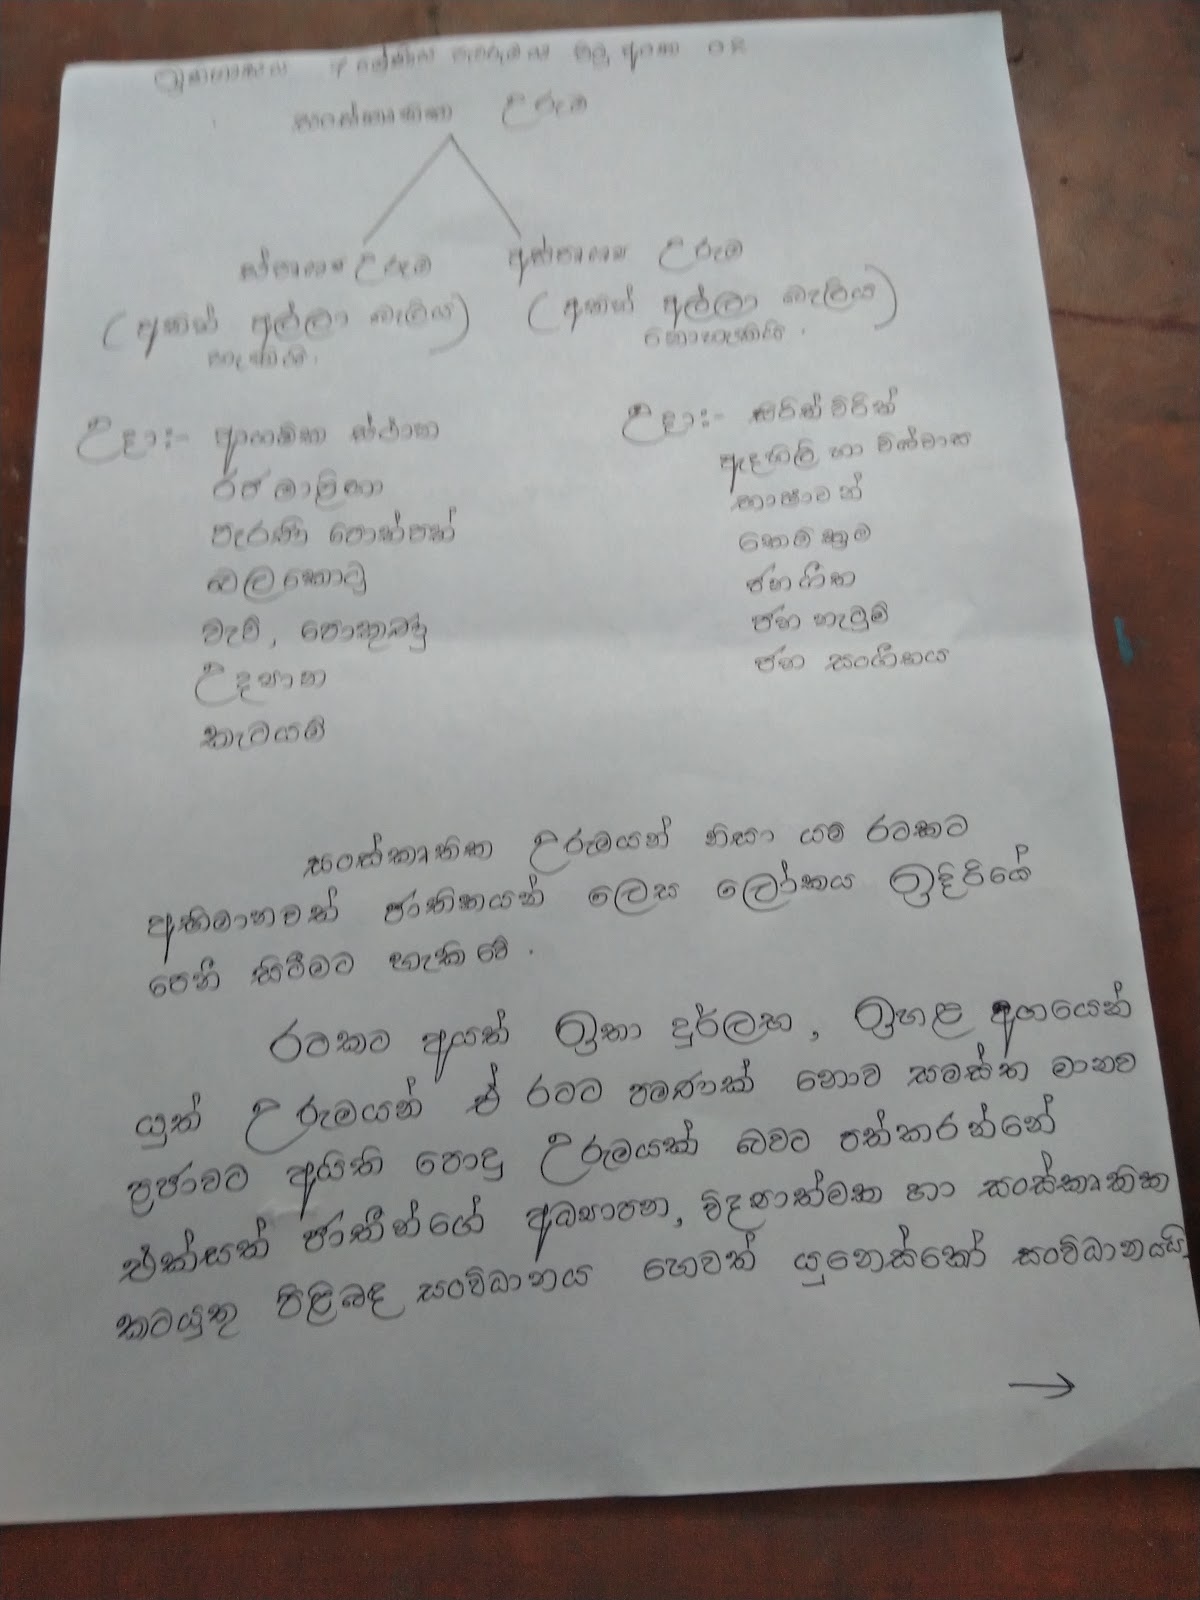 ඉතිහාසය 7 ශ්‍රේණිය
සංස්කෘතික උරුම
ස්පෘශ්‍ය උරුම
අස්පෘශ්‍ය උරුම
(අතින් අල්ලා බැලිය
හැකියි.
(අතින් අල්ලා බැලිය)
නොහැකියි.
උදා:- ආගමික ස්ථාන
රජ මාලිගා
පැරණි පොත්පත්
බලකොටු
වැව්, පොකුණු
උද්‍යාන
කැටයම්
උදා:- සිරිත් විරිත්
ඇදහිලි හා විශ්වාස
භාෂාවන්
කෙම් ක්‍රම
ජන ගීත
ජන නැටුම්
ජන සංගීතය
සංස්කෘතික උරුමයන් නිසා යම් රටකට
අභිමානවත් ජාතිකයන් ලෙස ලෝකය ඉදිරියේ
පෙනී සිටීමට හැකි වේ.
රටකට අයත් ඉතා දුර්ලභ, ඉහළ අගයෙන්
යුත් උරුමයන් ඒ රටට පමණක් නොව සමස්ත මානව
ප්‍රජාවට අයිති පොදු උරුමයක් බවට පත්කරන්නේ
එක්සත් ජාතීන්ගේ අධ්‍යාපන, විද්‍යාත්මක හා සංස්කෘතික
කටයුතු පිළිබඳ සංවිධානය හෙවත් යුනෙස්කෝ සංවිධානයයි.
→